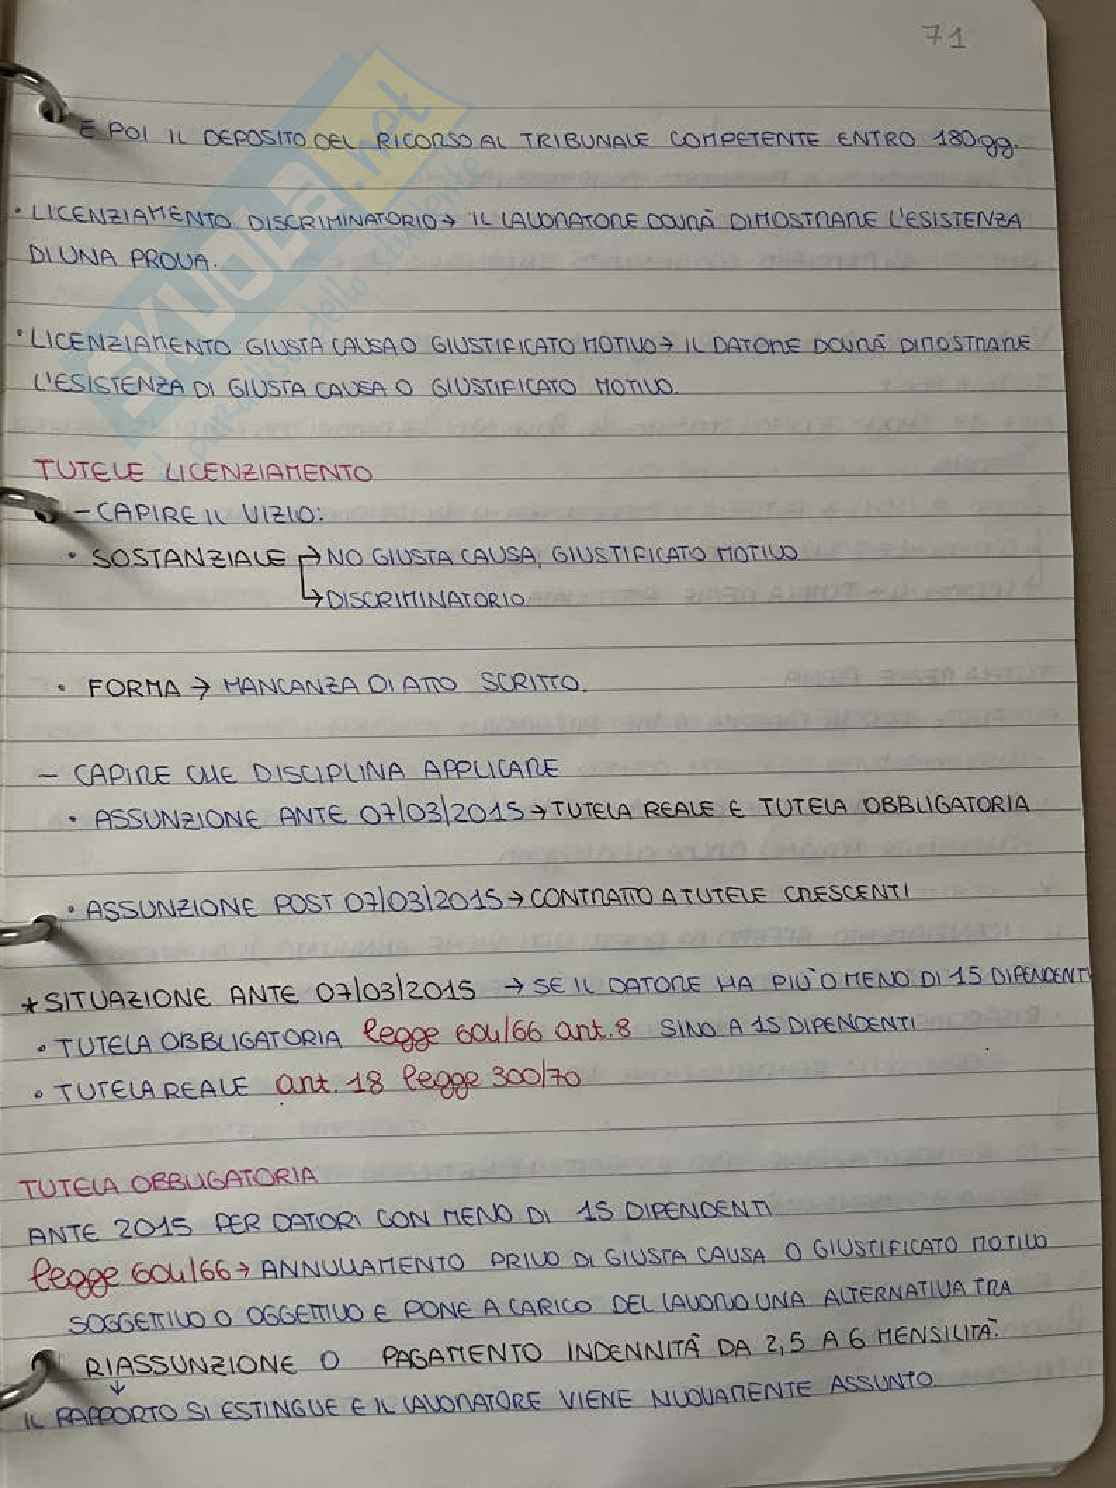 71
E POI IL DEPOSITO DEL RICORSO AL TRIBUNALE COMPETENTE ENTRO 180gg.
• LICENZIAMENTO DISCRIMINATORIO → IL LAVORATORE DOVRÀ DIMOSTRARE L'ESISTENZA
DI UNA PROVA.
• LICENZIAMENTO GIUSTA CAUSA O GIUSTIFICATO MOTIVO → IL DATORE DOVRÀ DIMOSTRARE
L'ESISTENZA DI GIUSTA CAUSA O GIUSTIFICATO MOTIVO.
TUTELE LICENZIAMENTO
- CAPIRE IL VIZIO:
• SOSTANZIALE → NO GIUSTA CAUSA, GIUSTIFICATO MOTIVO
↳ DISCRIMINATORIO
• FORMA → MANCANZA DI ATTO SCRITTO.
- CAPIRE CHE DISCIPLINA APPLICARE
• ASSUNZIONE ANTE 07/03/2015 → TUTELA REALE E TUTELA OBBLIGATORIA
• ASSUNZIONE POST 07/03/2015 → CONTRATTO A TUTELE CRESCENTI
* SITUAZIONE ANTE 07/03/2015 → SE IL DATORE HA PIÙ O MENO DI 15 DIPENDENTI
• TUTELA OBBLIGATORIA legge 604/66 art. 8 SINO A 15 DIPENDENTI
• TUTELA REALE art. 18 legge 300/70
TUTELA OBBLIGATORIA
ANTE 2015 PER DATORI CON MENO DI 15 DIPENDENTI
legge 604/66 → ANNULLAMENTO PRIVO DI GIUSTA CAUSA O GIUSTIFICATO MOTIVO
SOGGETTIVO O OGGETTIVO E PONE A CARICO DEL LAVORO UNA ALTERNATIVA TRA
RIASSUNZIONE O PAGAMENTO INDENNITÀ DA 2,5 A 6 MENSILITÀ.
↓
IL RAPPORTO SI ESTINGUE E IL LAVORATORE VIENE NUOVAMENTE ASSUNTO
SKUOLA.net